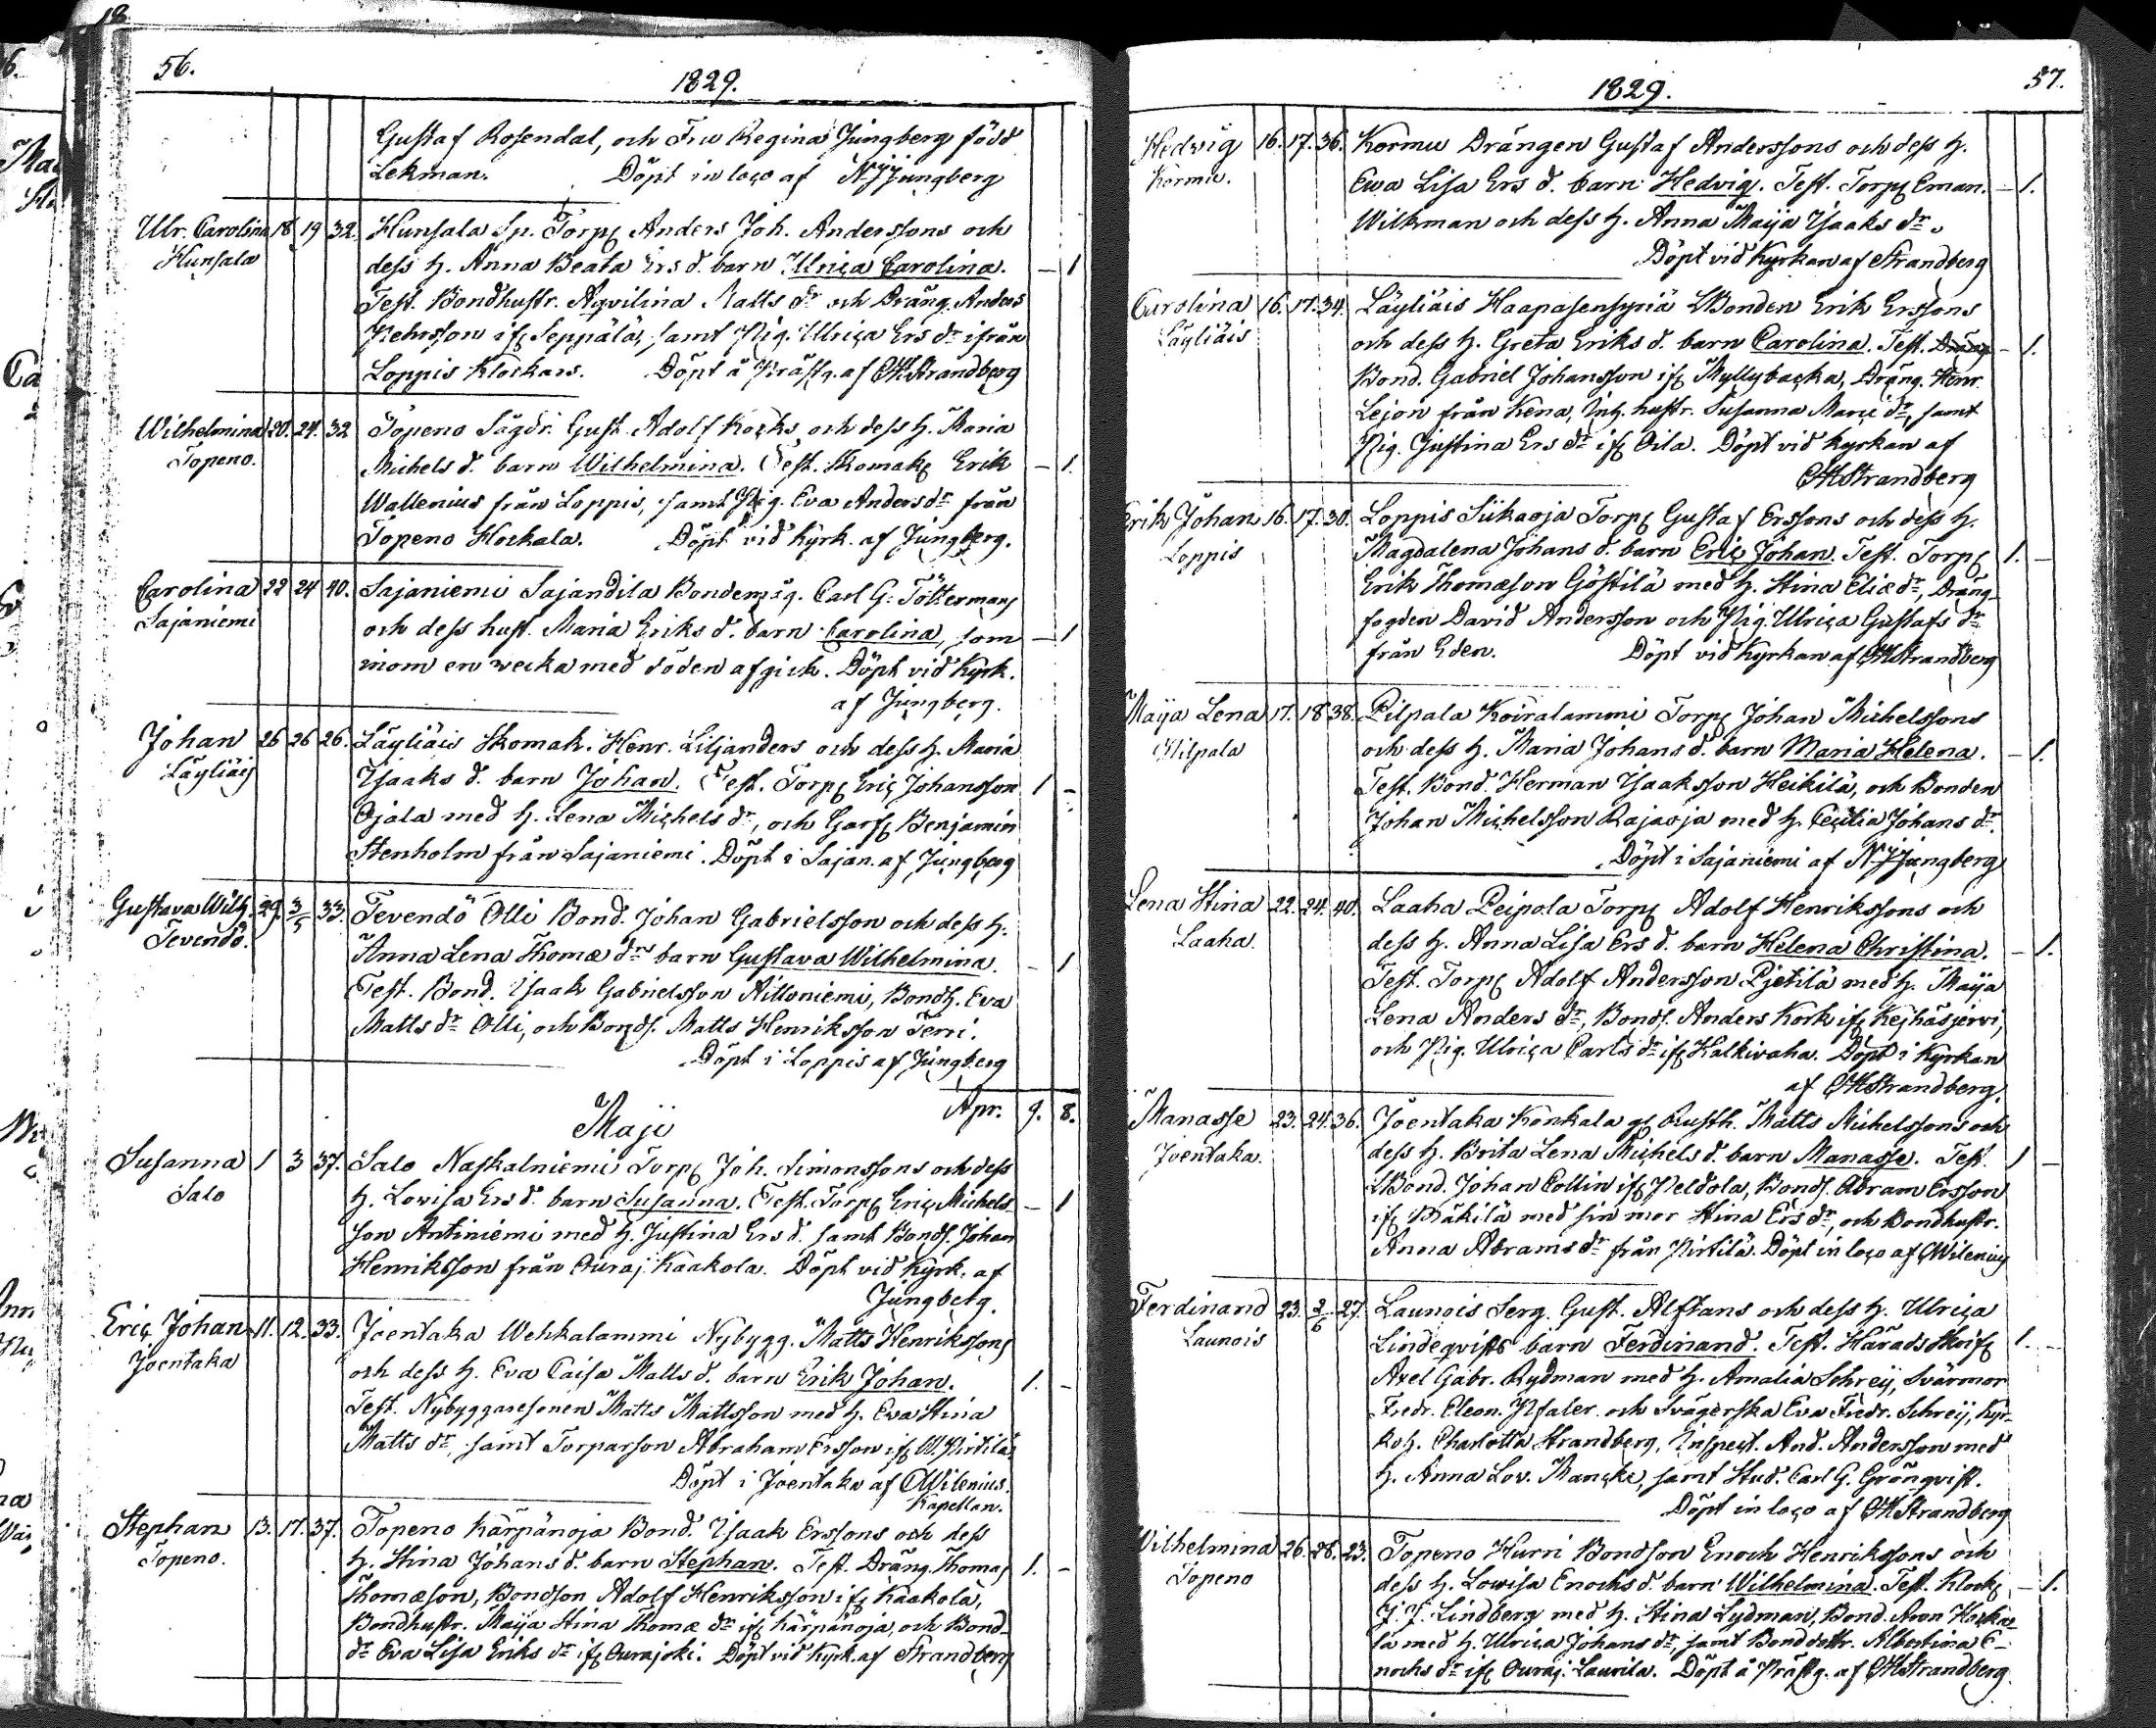 56.
1829.
Gustaf Rosendal, och Fru Regina Ljungberg född
Lekman. Döpt in loco af N J Ljungberg
Ulr. Carolina 18 19 32. Hunsala Sp. Torp. Anders Joh. Anderssons och
Hunsala dess h. Anna Beata Ers d. barn Ulrica Carolina. — 1
Test. Bondhustr. Aqvilina Matts dr och Dräng. Anders
Pehrsson if. Seppälä, samt Pig. Ulrica Ers dr ifrån
Loppis Klockars. Döpt å Prästg. af CHStrandberg
Wilhelmina 20. 24. 32 Topeno Sågdr. Gust. Adolf Kocks och dess h. Maria
Topeno. Michels d. barn Wilhelmina. Test. Skomak. Erik — 1.
Wallenius från Loppis, samt Pig. Eva Anders dr från
Topeno Hockala. Döpt vid Kyrk. af Ljungberg.
Carolina 22 24 40. Sajaniemi Sajandila Bondemåg. Carl G. Töttermans
Sajaniemi och dess hust. Maria Eriks d. barn Carolina, som — 1
inom en vecka med döden afgick. Döpt vid Kyrk.
af Ljungberg.
Johan 26 26 26. Läyliäis Skomak. Henr. Liljanders och dess h. Maria
Läyliäis Isaaks d. barn Johan. Test. Torp. Eric Johansson 1 –
Ojala med h. Lena Michels dr, och Garf. Benjamin
Stenholm från Sajaniemi. Döpt i Sajan. af Ljungberg
Gustava Wilh. 29. 3/5 33. Tevendö Olli Bond. Johan Gabrielsson och dess h.
Tevendö. Anna Lena Thomæ dr barn Gustava Wilhelmina. – 1
Test. Bond. Isaak Gabrielsson Aittoniemi, Bondh. Eva
Matts dr Olli, och Bonds. Matts Henriksson Terri.
Döpt i Loppis af Ljungberg
Apr. 9. 8.
Maji
Susanna 1 3 37. Salo Naskalniemi Torp. Joh. Simonssons och dess
Salo h. Lovisa Ers d. barn Susanna. Test. Torp. Eric Michels- — 1
son Antiniemi med h. Justina Ers d. samt Bonds. Johan
Henriksson från Ouraj. Kaakola. Döpt vid Kyrk. af
Ljungberg.
Eric Johan 11. 12. 33. Joentaka Wehkalammi Nybygg. Matts Henrikssons
Joentaka och dess h. Eva Caisa Matts d. barn Erik Johan. 1. –
Test. Nybyggaresonen Matts Mattsson med h. Eva Stina
Matts dr, samt Torparson Abraham Ersson if. W. Pirtilä,
Döpt i Joentaka af CWilenius.
Kapellan.
Stephan 13. 17. 37. Topeno Kärpänoja Bond. Isaak Erssons och dess
Topeno. h. Stina Johans d. barn Stephan. Test. Dräng. Thomas 1. –
Thomæson, Bondson Adolf Henriksson if. Kaakola,
Bondhustr. Maija Stina Thomæ dr if. Kärpänoja, och Bond-
dr Eva Lisa Eriks dr if. Ourajoki. Döpt vid Kyrk. af Strandberg
57.
1829.
Hedvig 16. 17. 36. Kormu Drängen Gustaf Anderssons och dess h.
Kormu. Ewa Lisa Ers d. barn Hedvig. Test. Torp. Eman. — 1.
Wilkman och dess h. Anna Maija Isaaks dr.
Döpt vid Kyrkan af Strandberg
Carolina 16. 17. 34. Läyliäis Haapasensyriä LBonden Erik Erssons
Läyliäis och dess h. Greta Eriks d. barn Carolina. Test. Dräng — 1.
Bond. Gabriel Johansson if. Myllybacka, Dräng. Henr.
Lejon från Kena, Inh. hustr. Susanna Marie dr, samt
Pig. Justina Ers dr if. Oila. Döpt vid Kyrkan af
CHStrandberg
Erik Johan 16. 17. 30. Loppis Siikaoja Torp. Gustaf Erssons och dess h.
Loppis Magdalena Johans d. barn Eric Johan. Test. Torp. 1. –
Erik Thomæson Göstilä med h. Stina Eliæ dr, Dräng-
fogden David Andersson och Pig. Ulrica Gustafs dr
från Eden. Döpt vid Kyrkan af CHStrandberg
Maija Lena 17. 18 38. Pilpala Koiralammi Torp. Johan Michelssons
Pilpala och dess h. Maria Johans d. barn Maria Helena. – 1.
Test. Bond. Herman Isaaksson Heikilä, och Bonden
Johan Michelsson Rajaoja med h. Cecilia Johans dr.
Döpt i Sajaniemi af N J Ljungberg
Lena Stina 22. 24. 40. Laaha Peipola Torp. Adolf Henrikssons och
Laaha. dess h. Anna Lisa Ers d. barn Helena Christina. – 1.
Test. Torp. Adolf Andersson Pjetilä med h. Maija
Lena Anders dr, Bonds. Anders Kork if. Kejhäsjervi,
och Pig. Ulrica Carls dr if. Kalkivaha. Döpt i Kyrkan
af CHStrandberg.
Manasse 23. 24. 36. Joentaka Konkala gl. Rusth. Matts Michelssons och
Joentaka. dess h. Brita Lena Michels d. barn Manasse. Test. 1 –
LBond. Johan Collin if. Peldola, Bonds. Abram Ersson
if. Bäkilä med sin mor Stina Ers dr, och Bondhustr.
Anna Abrams dr från Pirtilä. Döpt in loco af CWilenius
Ferdinand 23. 2/6 27. Launois Serg. Gust. Alftans och dess h. Ulrica
Launois Lindeqvists barn Ferdinand. Test. Härads Skrif. 1. –
Axel Gabr. Rydman med h. Amalia Schreij, Svärmor
Fredr. Eleon. Pfaler och Svägerska Eva Fredr. Schreij, Kyr-
koh. Charlotta Strandberg, Inspect. And. Andersson med
h. Anna Lov. Mancke, samt Stud. Carl G. Grönqvist.
Döpt in loco af CHStrandberg
Wilhelmina 26. 28. 23. Topeno Hurri Bondson Enoch Henrikssons och
Topeno dess h. Lowisa Enochs d. barn Wilhelmina. Test. Klock. – 1.
J. J. Lindberg med h. Stina Lydman, Bond. Aron Hocka-
la med h. Ulrica Johans dr, samt Bonddottr. Albertina E-
nochs dr if. Ouraj. Laurila. Döpt å Prästg. af CHStrandberg.